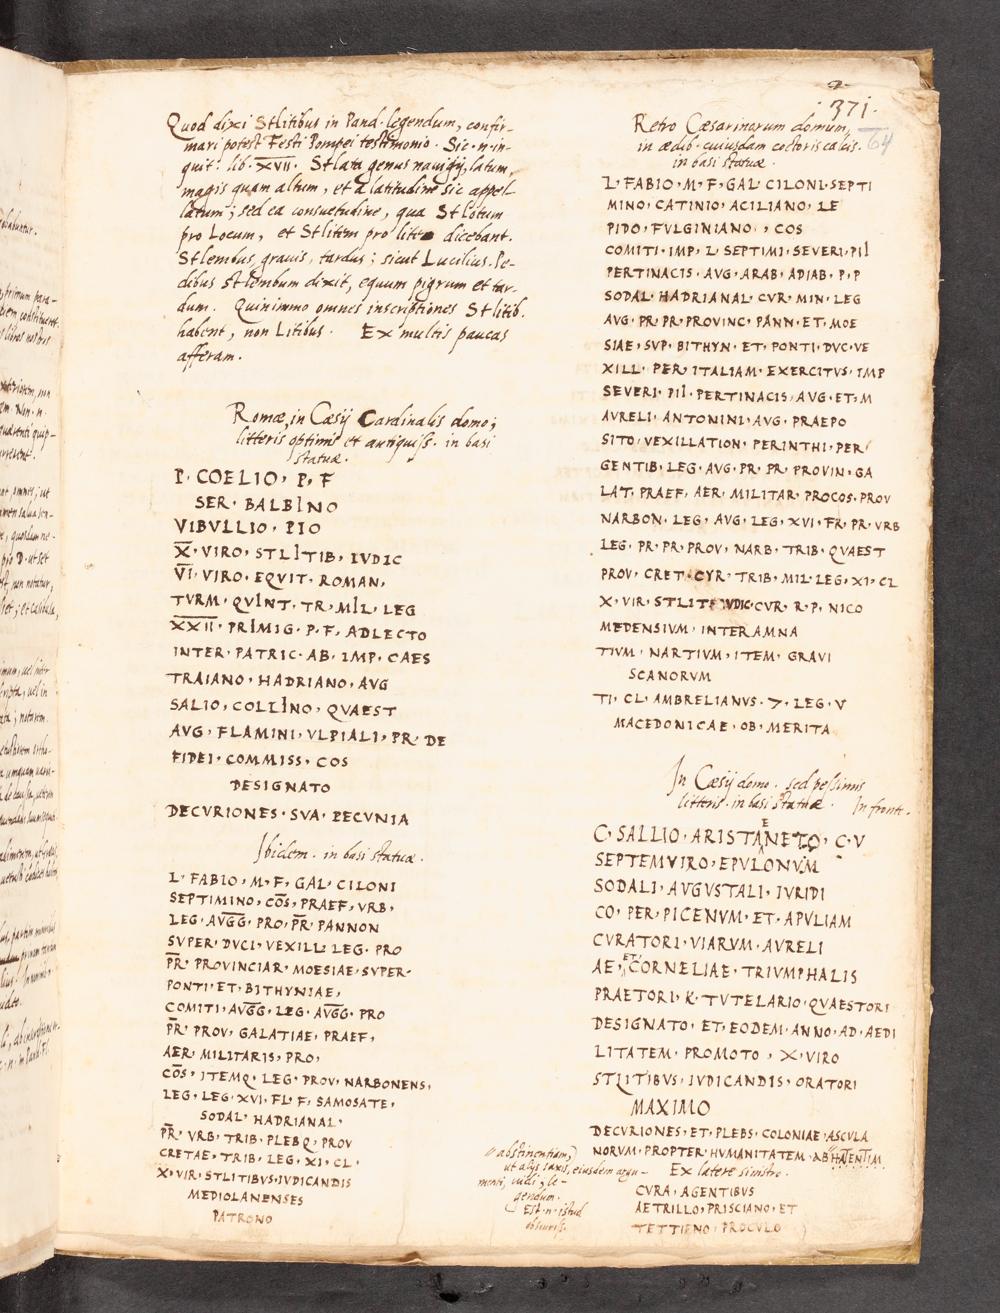 371.
64
Quod dixi Stlitibus in Pand. legendum, confir-
mari potest Festi Pompei testimonio. Sic.n.in-
quit lib. XVII. Stlata genus nauigij, latum,
magis quam altum, et a latitudine sic appel-
latum; sed ea consuetudine, qua Stlotum
pro Locum, et Stlitem pro lite dicebant.
Stlembus, grauis, tardus; sicut Lucilius. Pe-
dibus stlembum dixit, equum pigrum et tar-
dum. Quinimmo omnes inscriptiones Stlitib.
habent, non Litibus. Ex multis paucas
afferam.
Romæ, in Cæsij Cardinalis domo;
litteris optimis et antiquiss. in basi
statuæ.
P. COELIO, P, F
SER. BALBINO
VIBVLLIO. PIO
X. VIRO, STLITIB, IVDIC
VI. VIRO. EQVIT. ROMAN,
TVRM. QVINT. TR. MIL. LEG
XXII. PRIMIG. P. F. ADLECTO
INTER. PATRIC. AB. IMP. CAES
TRAIANO, HADRIANO, AVG
SALIO, COLLINO, QVAEST
AVG, FLAMINI, VLPIALI, PR. DE
FIDEI. COMMISS. COS
DESIGNATO
DECVRIONES. SVA. PECVNIA
Ibidem. in basi statuæ.
L. FABIO, M, F, GAL, CILONI
SEPTIMINO, COS, PRAEF, VRB,
LEG. AVGG. PRO, PR. PANNON
SVPER. DVCI, VEXILL. LEG. PRO
PR. PROVINCIAR. MOESIAE, SVPER.
PONTI. ET. BITHYNIAE,
COMITI. AVGG. LEG. AVGG. PRO
PR. PROV. GALATIAE, PRAEF,
AER. MILITARIS, PRO,
COS, ITEMQ. LEG. PROV, NARBONENS,
LEG. LEG. XVI. FL. F, SAMOSATE,
SODAL. HADRIANAL.
PR. VRB. TRIB. PLEB Q. PROV
CRETAE, TRIB. LEG. XI. CL.
X. VIR. STLITIBVS. IVDICANDIS
MEDIOLANENSES
PATRONO
Retro Cæsarinorum domum,
in ædib. cuiusdam coctoris calcis.
in basi statuæ.
L. FABIO, M. F, GAL. CILONI. SEPTI
MINO, CATINIO, ACILIANO, LE
PIDO, FVLGINIANO, , COS
COMITI. IMP. L. SEPTIMI. SEVERI. PII
PERTINACIS. AVG. ARAB. ADIAB. P. P
SODAL. HADRIANAL. CVR. MIN. LEG
AVG. PR. PR. PROVINC. PANN. ET. MOE
SIAE, SVP. BITHYN. ET. PONTI. DVC. VE
XILL. PER. ITALIAM. EXERCITVS. IMP
SEVERI. PII. PERTINACIS, AVG. ET. M
AVRELI. ANTONINI. AVG. PRAEPO
SITO, VEXILLATION. PERINTHI. PER
GENTIB. LEG. AVG. PR. PR. PROVIN. GA
LAT. PRAEF. AER. MILITAR. PROCOS. PROV
NARBON. LEG. AVG. LEG. XVI. FR. PR. VRB
LEG. PR. PR. PROV, NARB. TRIB. QVAEST
PROV. CRET. CYR. TRIB. MIL. LEG. XI. CL
X. VIR. STLIT. IVDIC. CVR. R. P. NICO
MEDENSIVM, INTERAMNA
TIVM, NARTIVM, ITEM, GRAVI
SCANORVM
TI. CL. AMBRELIANVS. 7. LEG. V
MACEDONICAE. OB. MERITA
In Cæsij domo. sed pessimis
litteris. in basi statuæ. In fronte.
C. SALLIO. ARISTAENETO, C. V
SEPTEMVIRO. EPVLONVM
SODALI, AVGVSTALI, IVRIDI
CO, PER. PICENVM. ET. APVLIAM
CVRATORI. VIARVM. AVRELI
AE, ET. CORNELIAE, TRIVMPHALIS
PRAETORI, K. TVTELARIO. QVAESTORI
DESIGNATO, ET. EODEM. ANNO. AD. AEDI
LITATEM. PROMOTO, X. VIRO
STLITIBVS, IVDICANDIS, ORATORI
MAXIMO
DECVRIONES, ET. PLEBS. COLONIAE. ASCVLA
NORVM. PROPTER. HVMANITATEM. ABSTINENTIAM.
Ex latere sinistro.
CVRA, AGENTIBVS
AETRILLO, PRISCIANO, ET
TETTIENO, PROCVLO
abstinentiam,
ut alijs saxis, eiusdem argu-
menti, uidi, le-
gendum.
Est.n. istud
obscuris.